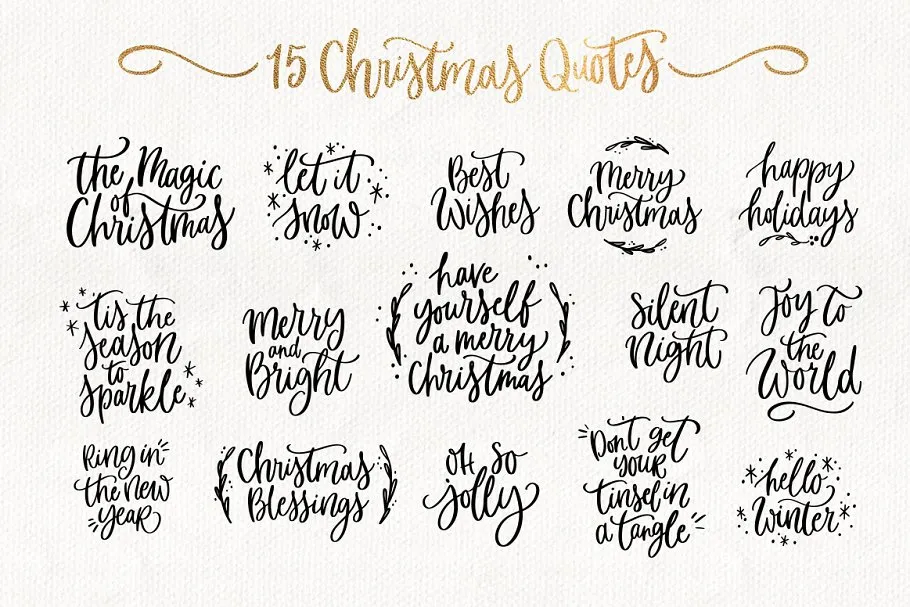 15 Christmas Quotes
the Magic
of
Christmas
let it
snow
Best
Wishes
Merry
Christmas
happy
holidays
'tis the
season
to
sparkle
Merry
and
Bright
have
yourself
a merry
Christmas
Silent
Night
Joy to
the
World
Ring in
the new
year
Christmas
Blessings
oh so
jolly
Don't get
your
tinsel in
a tangle
hello
winter